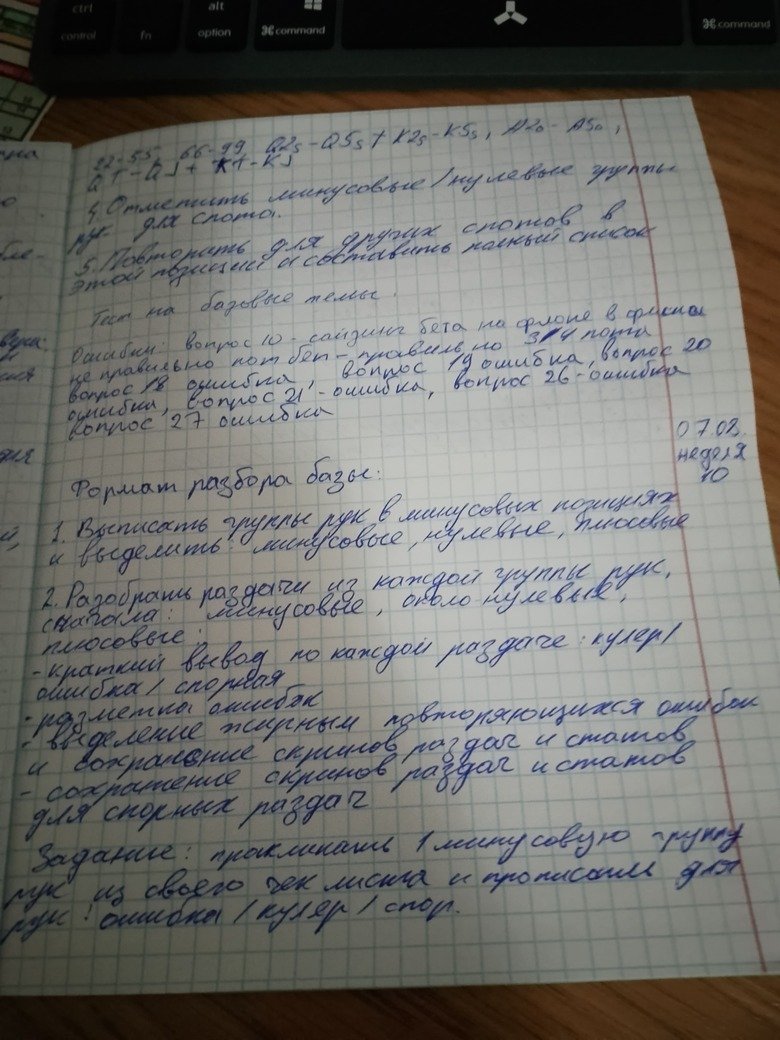 ctrl
control
fn
alt
option
⌘ command
⌘ command
22-55, 66-99, Q2s-Q5s + K2s-K5s, A2o-A5o,
QT-QJ + KT-KJ
4. Отметить минусовые/нулевые группы
рук для спота.
5. Повторять для других спотов в
этой позиции и составить полный список
Тест на базовые темы.
Ошибки: вопрос 10 - сайзинг бета на флопе в
не правильно пот бет - правильно 3/4 пота
вопрос 18 ошибка, вопрос 19 ошибка, вопрос 20
ошибка, вопрос 21 - ошибка, вопрос 26 - ошибка
вопрос 27 ошибка
07.02.
неделя
10
Формат разбора базы:
1. Выписать группы рук в минусовых позициях
и выделить: минусовые, нулевые, плюсовые
2. Разобрать раздачи из каждой группы рук,
сначала: минусовые, около нулевые,
плюсовые:
- краткий вывод по каждой раздаче: кулер/
ошибка/спорная
- разметка ошибок
- выделение жирным повторяющихся ошибок
и сохранение скринов раздач и статов
- сохранение скринов раздач и статов
для спорных раздач
Задание: прокликать 1 минусовую группу
рук из своего чек листа и прописать для
рук: ошибка/кулер/спор.